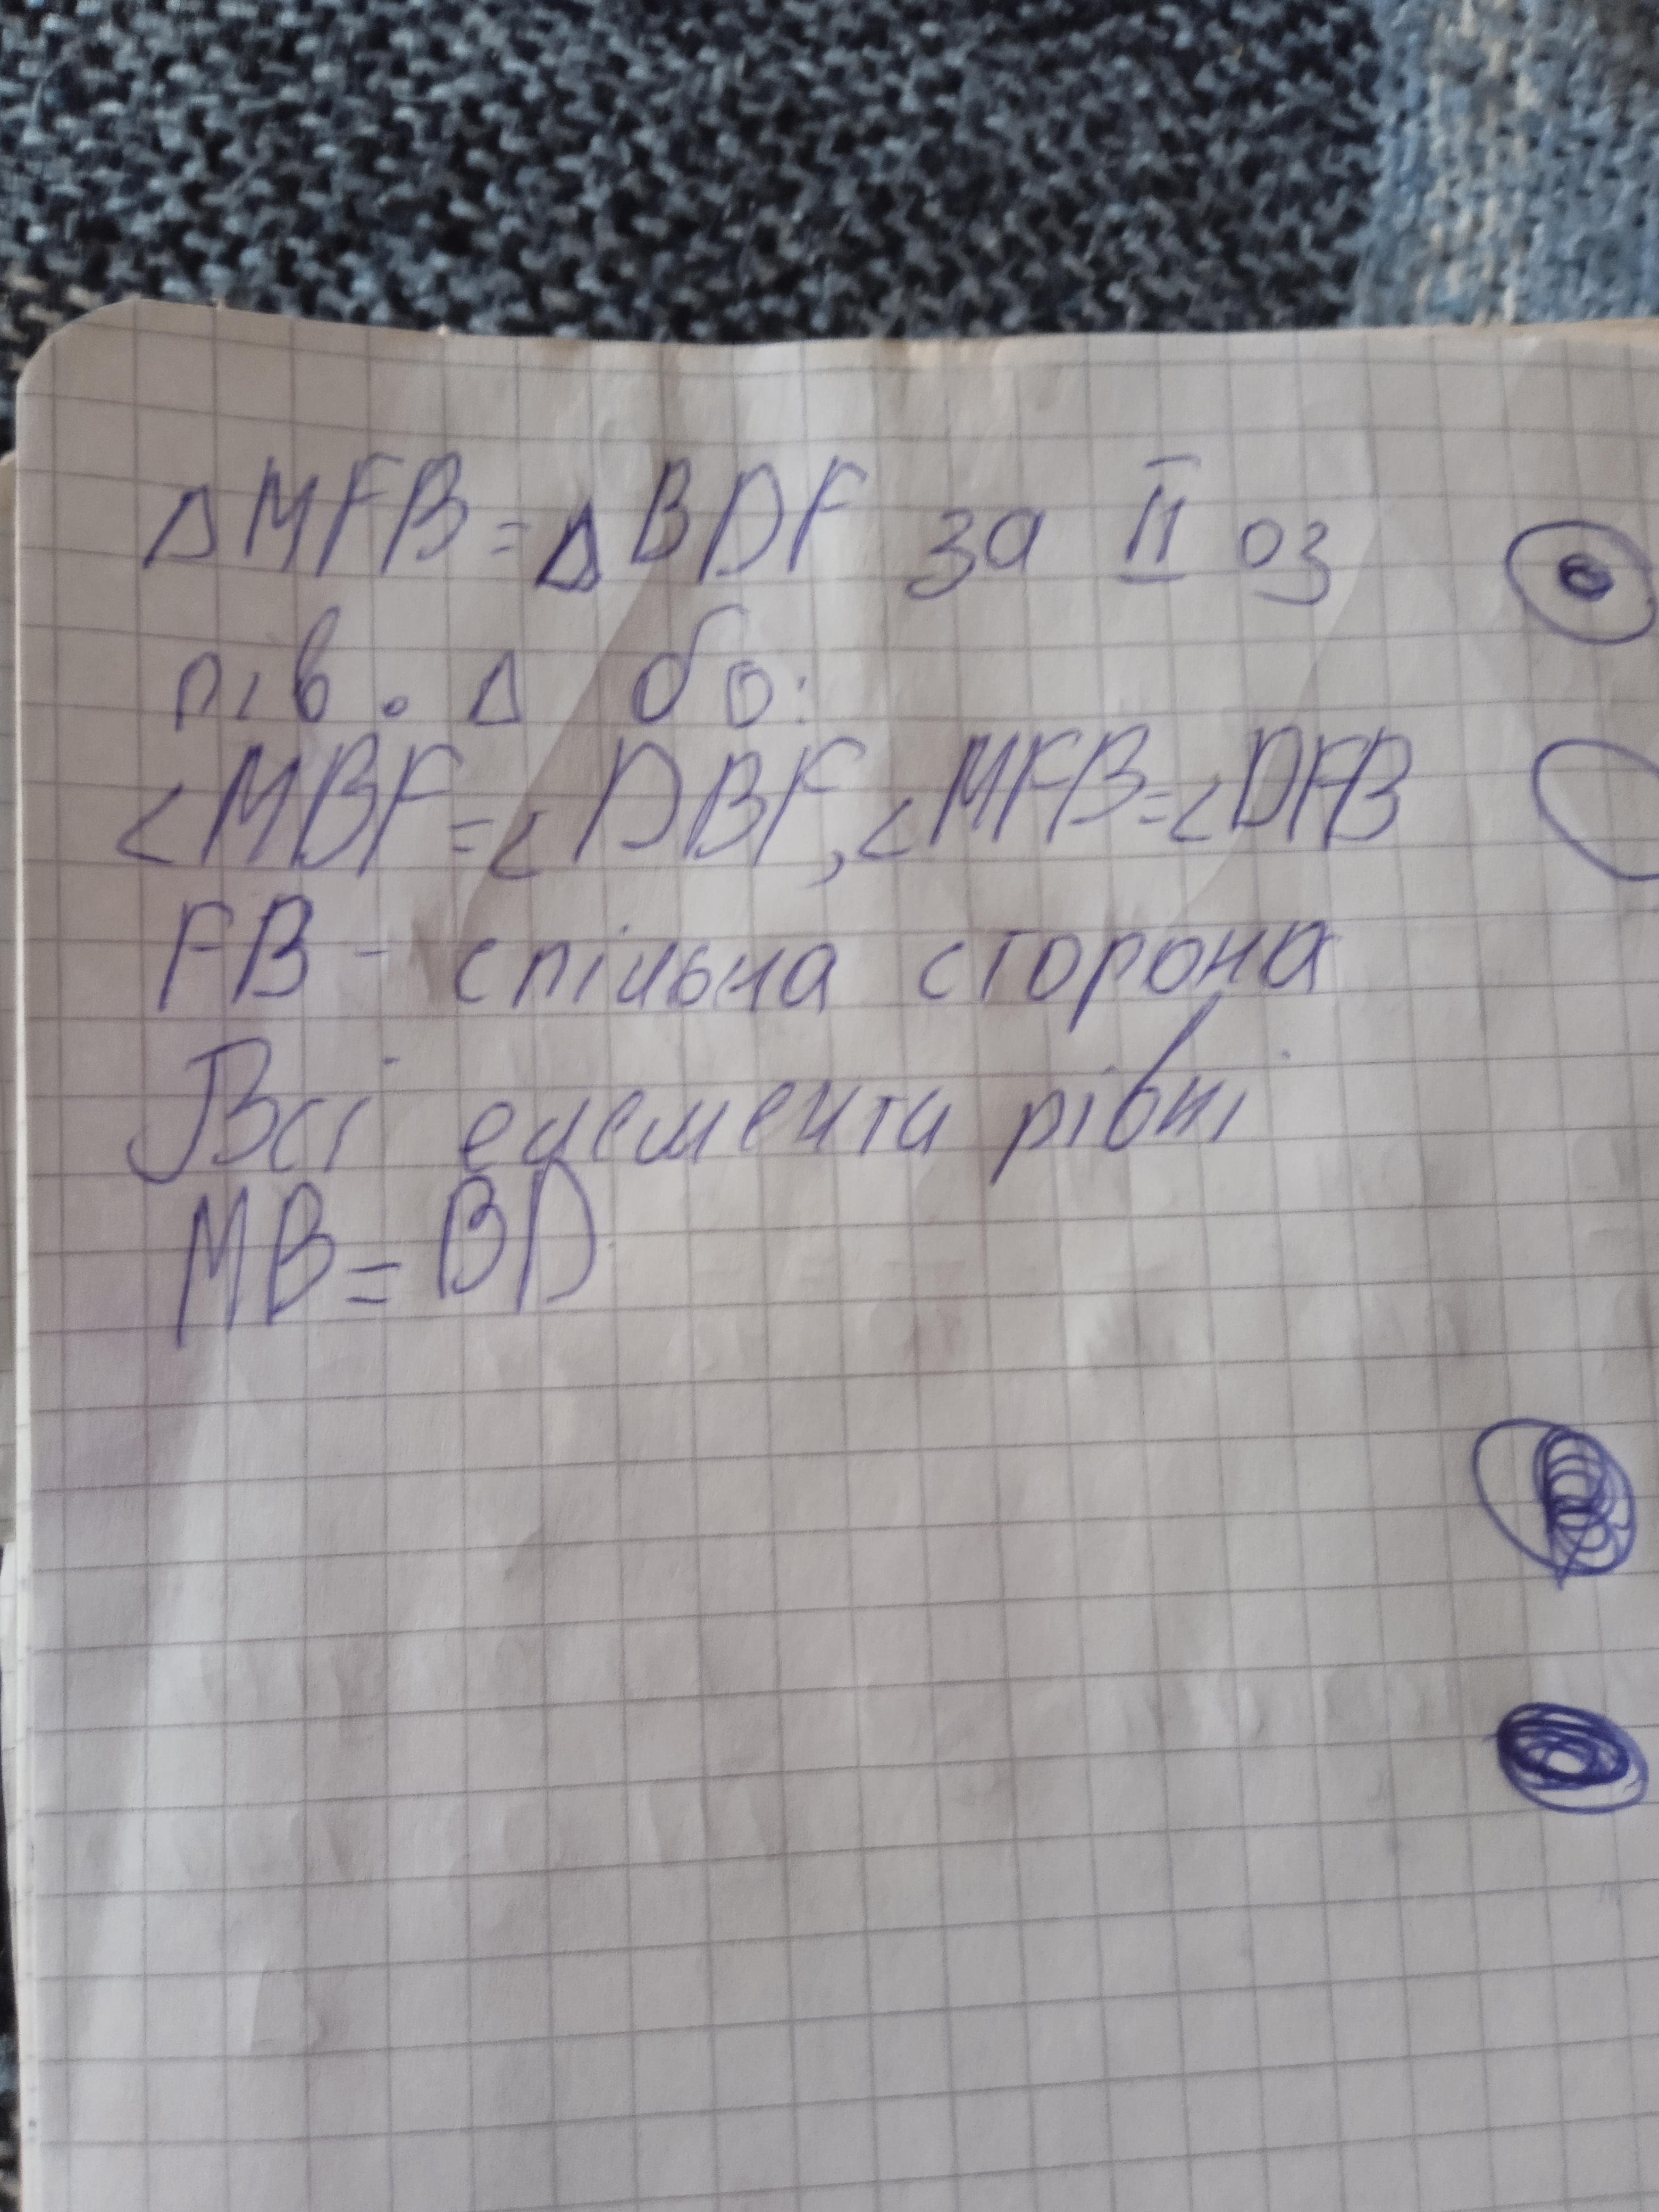 ΔMFB=ΔBDF за II оз
рів. Δ бо:
<MBF=<DBF,<MFB=<DFB
FB - спільна сторона
Всі елементи рівні
MB=BD